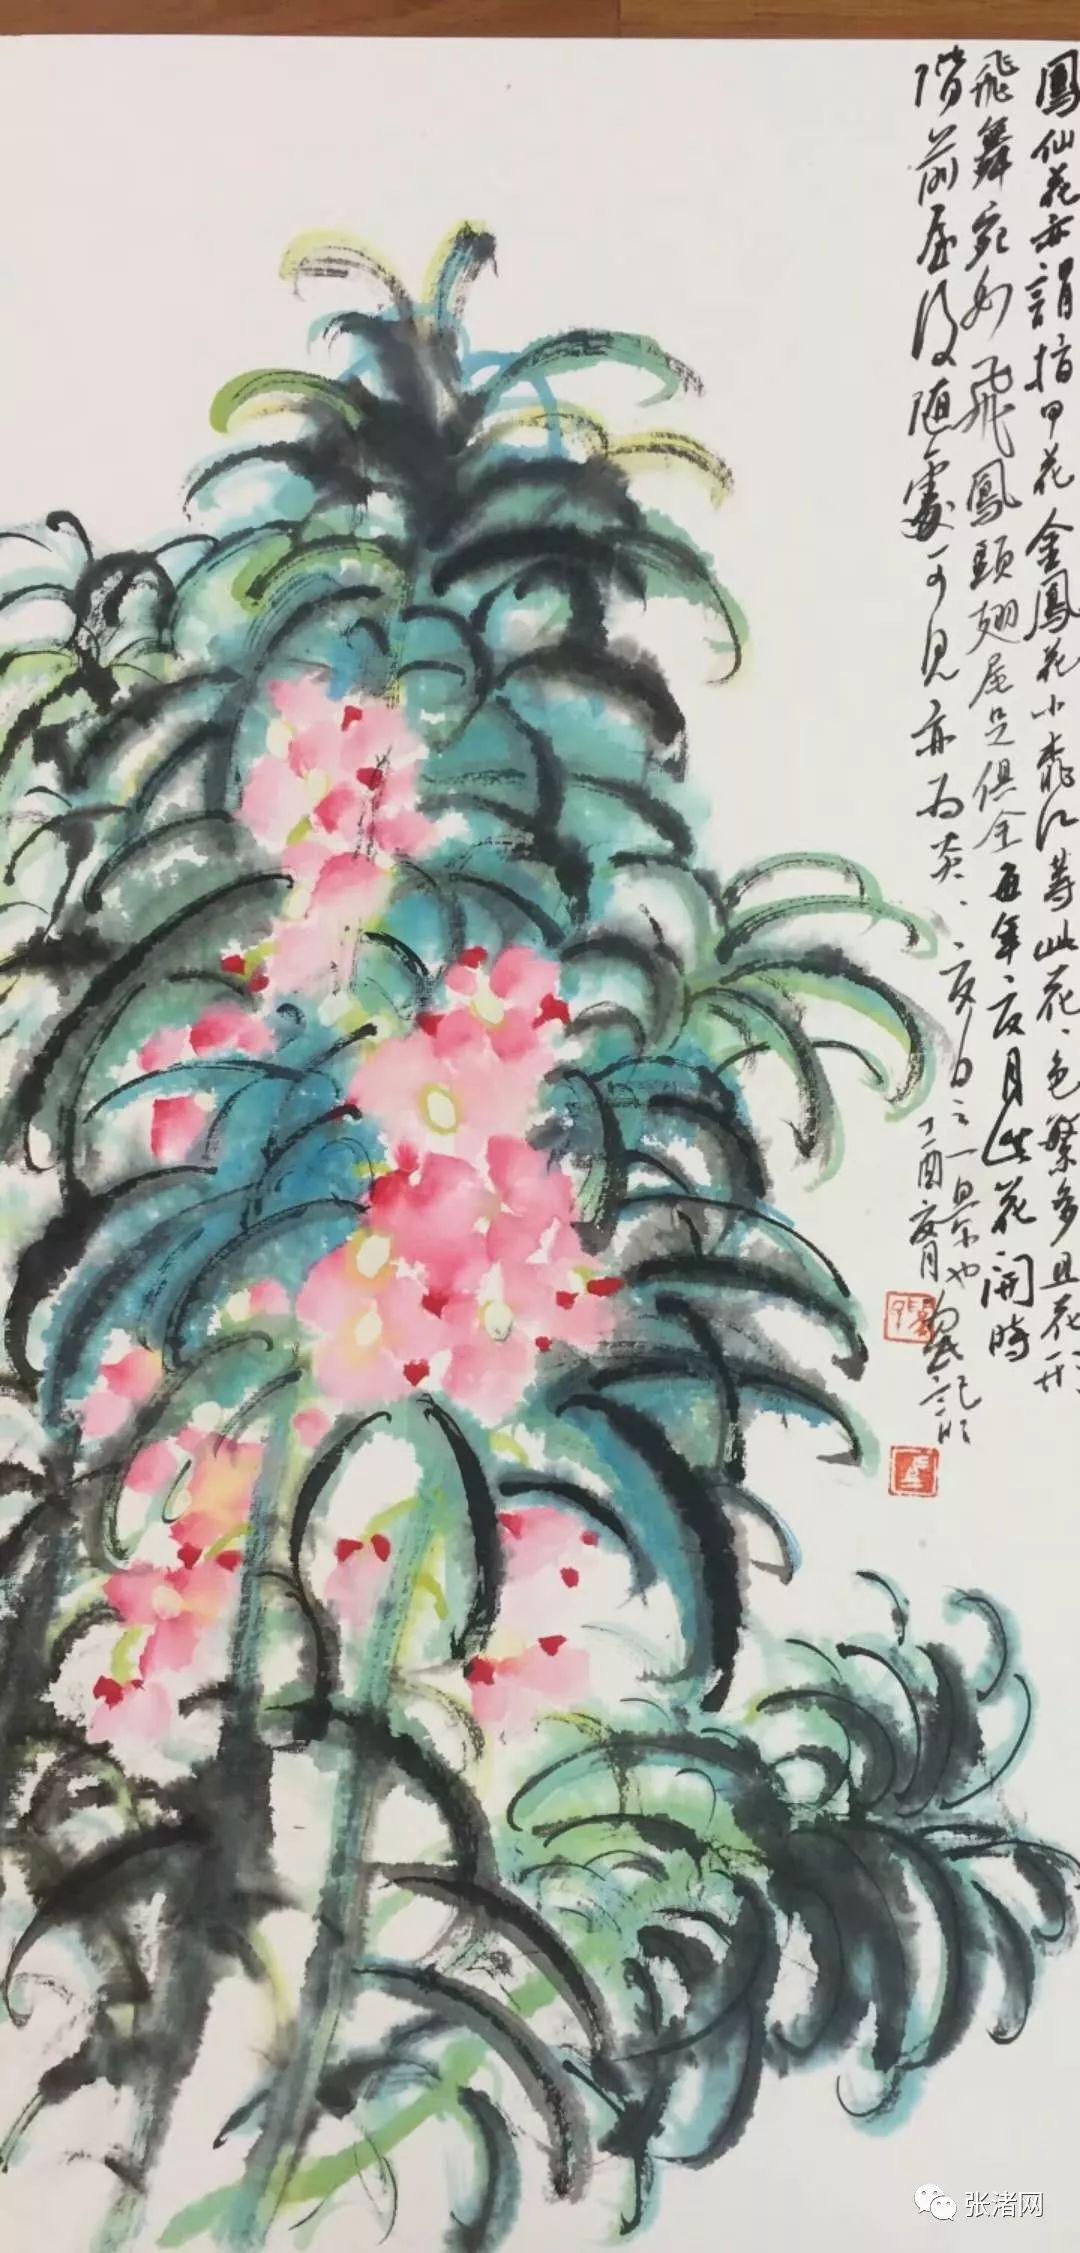 鳳仙花亦謂指甲花金鳳花小桃红等此花、色繁多且花形
飛舞宛如飛鳳頭翅尾足俱全每年夏月此花開時
階前屋後随處可見亦为炎、夏日之一景也
丁酉夏月
张渚网